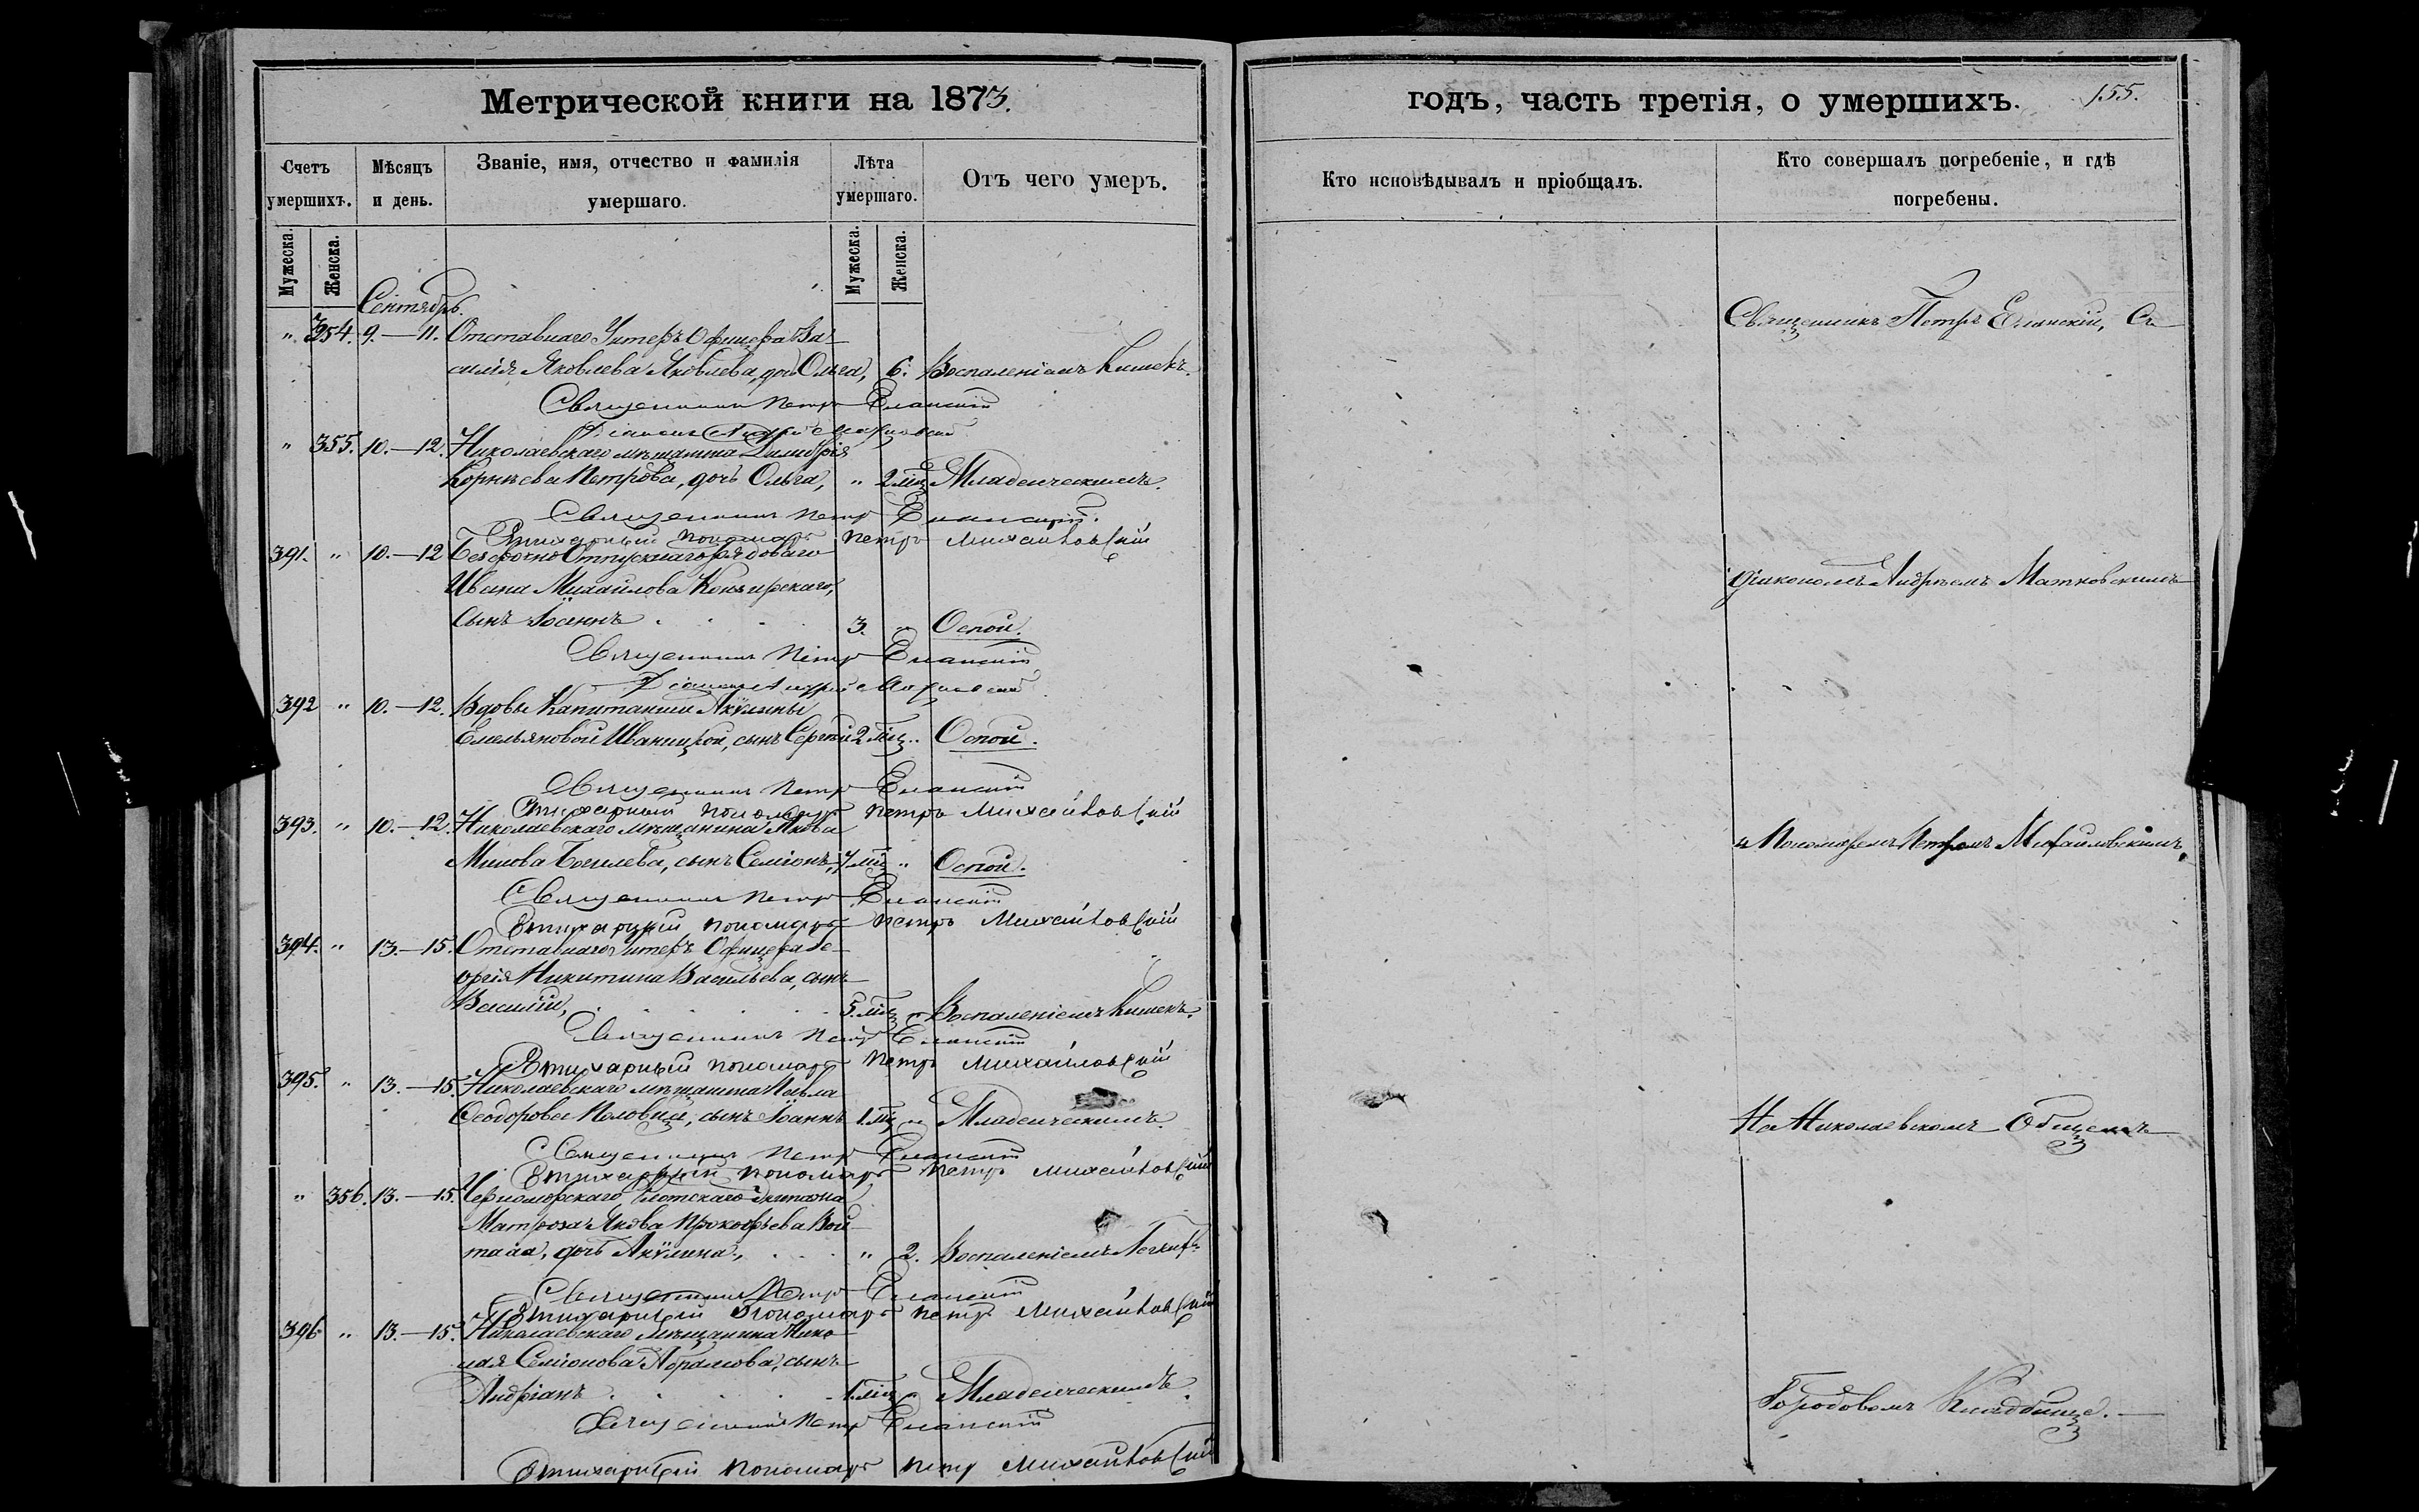 Метрической книги на 1873.
Счетъ умершихъ.
Мѣсяцъ и день.
Званіе, имя, отчество и фамилія умершаго.
Лѣта умершаго.
Отъ чего умеръ.
Мужеска. Женска.
Мужеска. Женска.
Сентябрь.
" 354. 9.—11. Отставнаго Унтеръ Офицера Ва-
силія Яковлева Яковлева, дочь Ольга, 6. Воспаленіемъ Кишекъ.
Священникъ Петръ Еланскій
Діаконъ Андрей Матковскій
" 355. 10.—12. Николаевскаго мѣщанина Димитрія
Корнѣева Петрова, дочь Ольга, " 2 мѣц Младенческимъ.
Священникъ Петръ Еланскій.
Стихарный пономарь Петръ Михайловскій
391. " 10.—12 Безсрочно Отпускнаго рядоваго
Ивана Михайлова
сынъ 3. " Оспой.
Священникъ Петръ Еланскій
Діаконъ Андрей Матковскій
392 " 10.—12. Вдовы Капитанши Акулины
Емельяновой Иваницкой, сынъ Сергѣй 2 мѣц " Оспой.
Священникъ Петръ Еланскій
Стихарный пономарь Петръ Михайловскій
393. " 10.—12. Николаевскаго мѣщанина Якова
сынъ Семіонъ, 7 мѣц " Оспой.
Священникъ Петръ Еланскій
Стихарный пономарь Петръ Михайловскій
394. " 13.—15. Отставнаго Унтеръ Офицера Ге-
оргія Никитина Васильева, сынъ
Василій, 5. мѣц " Воспаленіемъ Кишекъ.
Священникъ Петръ Еланскій
Стихарный пономарь Петръ Михайловскій
395. " 13.—15. Николаевскаго мѣщанина Павла
Феодорова сынъ Іоаннъ 1. мѣц " Младенческимъ.
Священникъ Петръ Еланскій
Стихарный пономарь Петръ Михайловскій
" 356. 13.—15. Черноморскаго Флотскаго Экипажа
Матроза Якова Прокофьева Вой-
дочь Акулина, " 2. Воспаленіемъ Легкихъ
Священникъ Петръ Еланскій
Стихарный Пономарь Петръ Михайловскій
396 " 13.—15. Николаевскаго мѣщанина Нико-
лая Семіонова Абрамова, сынъ
Андріанъ 1. мѣц " Младенческимъ.
Священникъ Петръ Еланскій
Стихарный пономарь Петръ Михайловскій
годъ, часть третія, о умершихъ. 155.
Кто исповѣдывалъ и пріобщалъ.
Кто совершалъ погребеніе, и гдѣ погребены.
Священникъ Петръ Еланскій, Съ
Діакономъ Андреемъ Матковскимъ
и Пономаремъ Петромъ Михайловскимъ,
На Николаевскомъ Общемъ
Городовомъ Кладбищѣ.